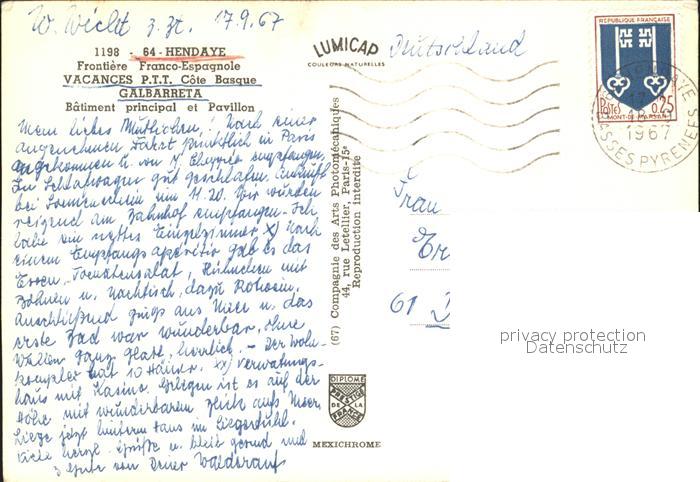 W. Wicht z. Zt. 17.9.67
1198 - 64 - HENDAYE
Frontière Franco-Espagnole
VACANCES P.T.T. Côte Basque
GALBARRETA
Bâtiment principal et Pavillon
LUMICAP
COULEURS NATURELLES
Deutschland
REPUBLIQUE FRANÇAISE
POSTES 0,25
MONT-DE-MARSAN
1967
BASSES PYRENEES
Mein liebes Muttichen! Nach einer
angenehmen Fahrt pünktlich in Paris
angekommen u. von M. empfangen.
Im Schlafwagen gut geschlafen. Ankunft
bei Sonnenschein um 11.20. Wir wurden
am Bahnhof empfangen. Ich
habe ein nettes Einzelzimmer x) Nach
einem Empfangsaperitiv gab es das
Essen, Tomatensalat, Hühnchen mit
Bohnen u. Nachtisch, dazu Rotwein.
Anschließend gings ans Meer u. das
erste Bad war wunderbar, ohne
Wellen ganz glatt, herrlich. - Der Wohn-
komplex hat 10 Häuser. xx) Verwaltungs-
haus mit Kasino. Gelegen ist es auf der
Höhe mit wunderbarem Blick aufs Meer.
Liege jetzt hinterm Haus im Liegestuhl.
Viele herzl. Grüße u. bleib gesund und
von Deiner Waldtraut
(67) Compagnie des Arts Photomécaniques
44, rue Letellier, Paris-15e
Reproduction Interdite
Frau
61
privacy protection
Datenschutz
DIPLOME
PRESTIGE
DE LA
FRANCE
MEXICHROME